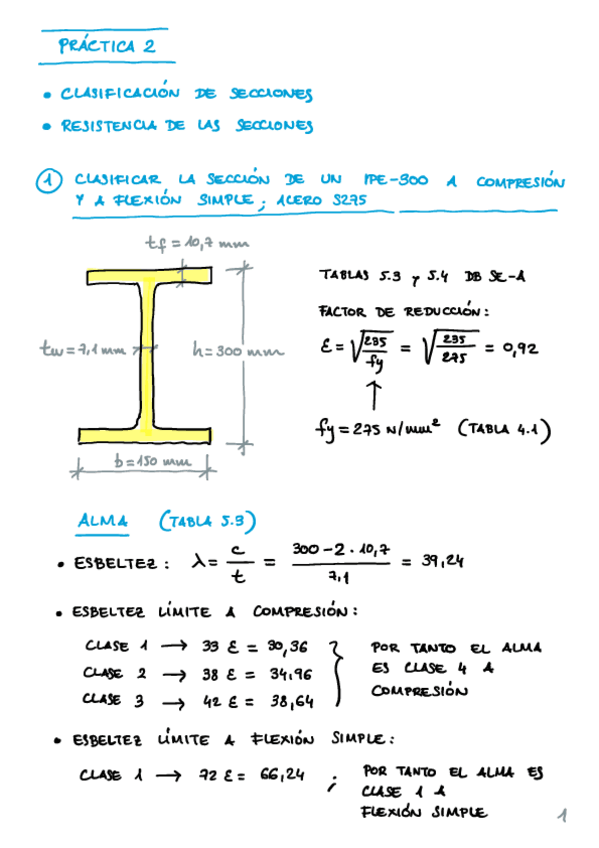 PRÁCTICA 2
• CLASIFICACIÓN DE SECCIONES
• RESISTENCIA DE LAS SECCIONES
1 CLASIFICAR LA SECCIÓN DE UN IPE-300 A COMPRESIÓN
Y A FLEXIÓN SIMPLE; ACERO S275
tf = 10,7 mm
tw = 7,1 mm
h = 300 mm
b = 150 mm
TABLAS 5.3 y 5.4 DB SE-A
FACTOR DE REDUCCIÓN:
ε = √(235/fy) = √(235/275) = 0,92
↑
fy = 275 N/mm² (TABLA 4.1)
ALMA (TABLA 5.3)
• ESBELTEZ: λ = c/t = (300 - 2 · 10,7)/7,1 = 39,24
• ESBELTEZ LÍMITE A COMPRESIÓN:
CLASE 1 → 33 ε = 30,36
CLASE 2 → 38 ε = 34,96
CLASE 3 → 42 ε = 38,64
POR TANTO EL ALMA
ES CLASE 4 A
COMPRESIÓN
• ESBELTEZ LÍMITE A FLEXIÓN SIMPLE:
CLASE 1 → 72 ε = 66,24 ;
POR TANTO EL ALMA ES
CLASE 1 A
FLEXIÓN SIMPLE
1